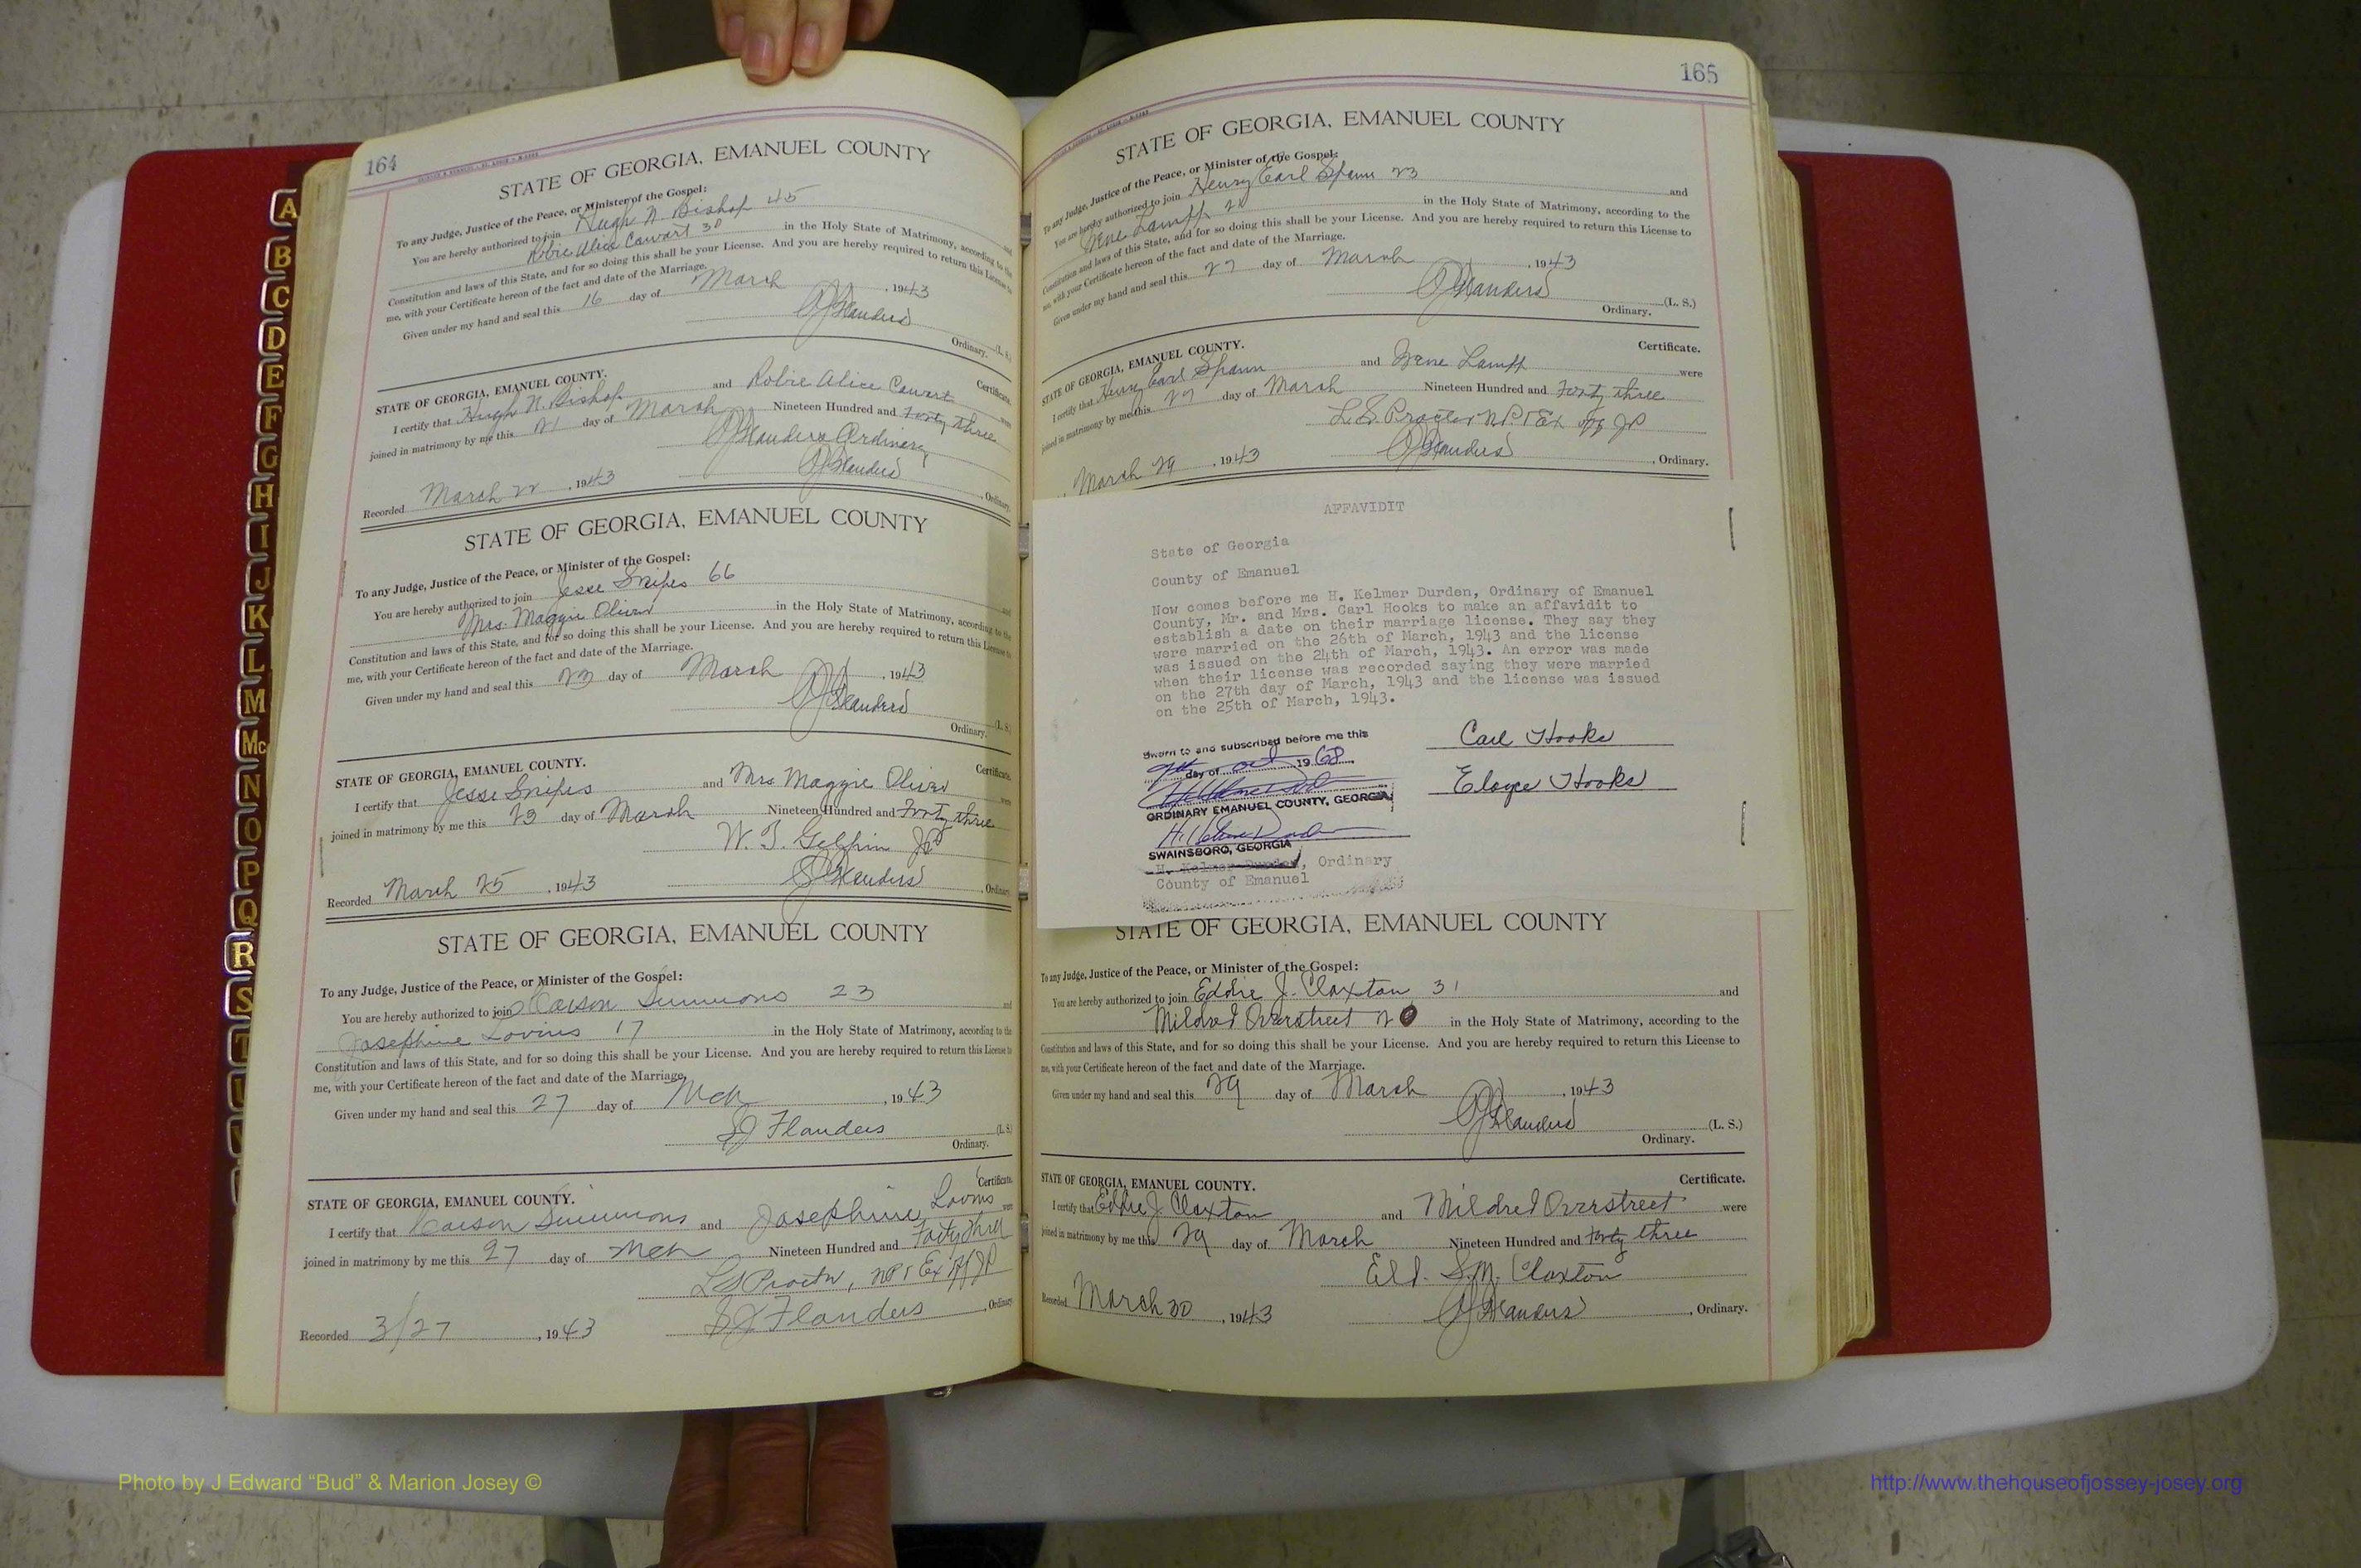 164
STATE OF GEORGIA, EMANUEL COUNTY
To any Judge, Justice of the Peace, or Minister of the Gospel:
You are hereby authorized to join Hugh N. Bishop 45 and
Robie Alice Cowart 30 in the Holy State of Matrimony, according to the
Constitution and laws of this State, and for so doing this shall be your License. And you are hereby required to return this License to
me, with your Certificate hereon of the fact and date of the Marriage.
Given under my hand and seal this 16 day of March, 1943
Flanders (L. S.)
Ordinary.
STATE OF GEORGIA, EMANUEL COUNTY. Certificate.
I certify that Hugh N. Bishop and Robie Alice Cowart were
joined in matrimony by me this 21 day of March Nineteen Hundred and Forty three
Flanders Ordinary
Recorded March 22, 1943 Flanders, Ordinary.
STATE OF GEORGIA, EMANUEL COUNTY
To any Judge, Justice of the Peace, or Minister of the Gospel:
You are hereby authorized to join Jesse Snipes 66 and
Mrs. Maggie Oliver in the Holy State of Matrimony, according to the
Constitution and laws of this State, and for so doing this shall be your License. And you are hereby required to return this License to
me, with your Certificate hereon of the fact and date of the Marriage.
Given under my hand and seal this 23 day of March, 1943
Flanders (L. S.)
Ordinary.
STATE OF GEORGIA, EMANUEL COUNTY. Certificate.
I certify that Jesse Snipes and Mrs Maggie Oliver were
joined in matrimony by me this 23 day of March Nineteen Hundred and Forty three
W. J. JP
Recorded March 25, 1943 Flanders, Ordinary.
STATE OF GEORGIA, EMANUEL COUNTY
To any Judge, Justice of the Peace, or Minister of the Gospel:
You are hereby authorized to join Carson Simmons 23 and
Josephine Lovins 17 in the Holy State of Matrimony, according to the
Constitution and laws of this State, and for so doing this shall be your License. And you are hereby required to return this License to
me, with your Certificate hereon of the fact and date of the Marriage.
Given under my hand and seal this 27 day of Mch, 1943
Flanders (L. S.)
Ordinary.
STATE OF GEORGIA, EMANUEL COUNTY. Certificate.
I certify that Carson Simmons and Josephine Lovins were
joined in matrimony by me this 27 day of Mch Nineteen Hundred and Forty three
L S Proctor, NP & Ex off JP
Recorded 3/27, 1943 Flanders, Ordinary
165
STATE OF GEORGIA, EMANUEL COUNTY
To any Judge, Justice of the Peace, or Minister of the Gospel:
You are hereby authorized to join Henry Earl Spann 23 and
Irene Lampp in the Holy State of Matrimony, according to the
Constitution and laws of this State, and for so doing this shall be your License. And you are hereby required to return this License to
me, with your Certificate hereon of the fact and date of the Marriage.
Given under my hand and seal this 27 day of March, 1943
Flanders (L. S.)
Ordinary.
STATE OF GEORGIA, EMANUEL COUNTY. Certificate.
I certify that Henry Earl Spann and Irene Lampp were
joined in matrimony by me this 27 day of March Nineteen Hundred and Forty three
L. S. Proctor N.P. & Ex off JP
March 29, 1943 Flanders, Ordinary.
AFFAVIDIT
State of Georgia
County of Emanuel
Now comes before me H. Kelmer Durden, Ordinary of Emanuel
County, Mr. and Mrs. Carl Hooks to make an affavidit to
establish a date on their marriage license. They say they
were married on the 26th of March, 1943 and the license
was issued on the 24th of March, 1943. An error was made
when their license was recorded saying they were married
on the 27th day of March, 1943 and the license was issued
on the 25th of March, 1943.
Sworn to and subscribed before me this
day of Oct 1968
Carl Hooks
Eloyce Hooks
ORDINARY EMANUEL COUNTY, GEORGIA
SWAINSBORO, GEORGIA
H. Kelmer Durden, Ordinary
County of Emanuel
STATE OF GEORGIA, EMANUEL COUNTY
To any Judge, Justice of the Peace, or Minister of the Gospel:
You are hereby authorized to join Eddie J. Claxton 31 and
Mildred Overstreet 20 in the Holy State of Matrimony, according to the
Constitution and laws of this State, and for so doing this shall be your License. And you are hereby required to return this License to
me, with your Certificate hereon of the fact and date of the Marriage.
Given under my hand and seal this 29 day of March, 1943
Flanders (L. S.)
Ordinary.
STATE OF GEORGIA, EMANUEL COUNTY. Certificate.
I certify that Eddie J. Claxton and Mildred Overstreet were
joined in matrimony by me this 29 day of March Nineteen Hundred and Forty three
Eld. S.M. Claxton
Recorded March 30, 1943 Flanders, Ordinary.
A
B
C
D
E
F
G
H
I
J
K
L
M
Mc
N
O
P
Q
R
S
T
Photo by J Edward “Bud” & Marion Josey ©
http://www.thehouseofjossey-josey.org